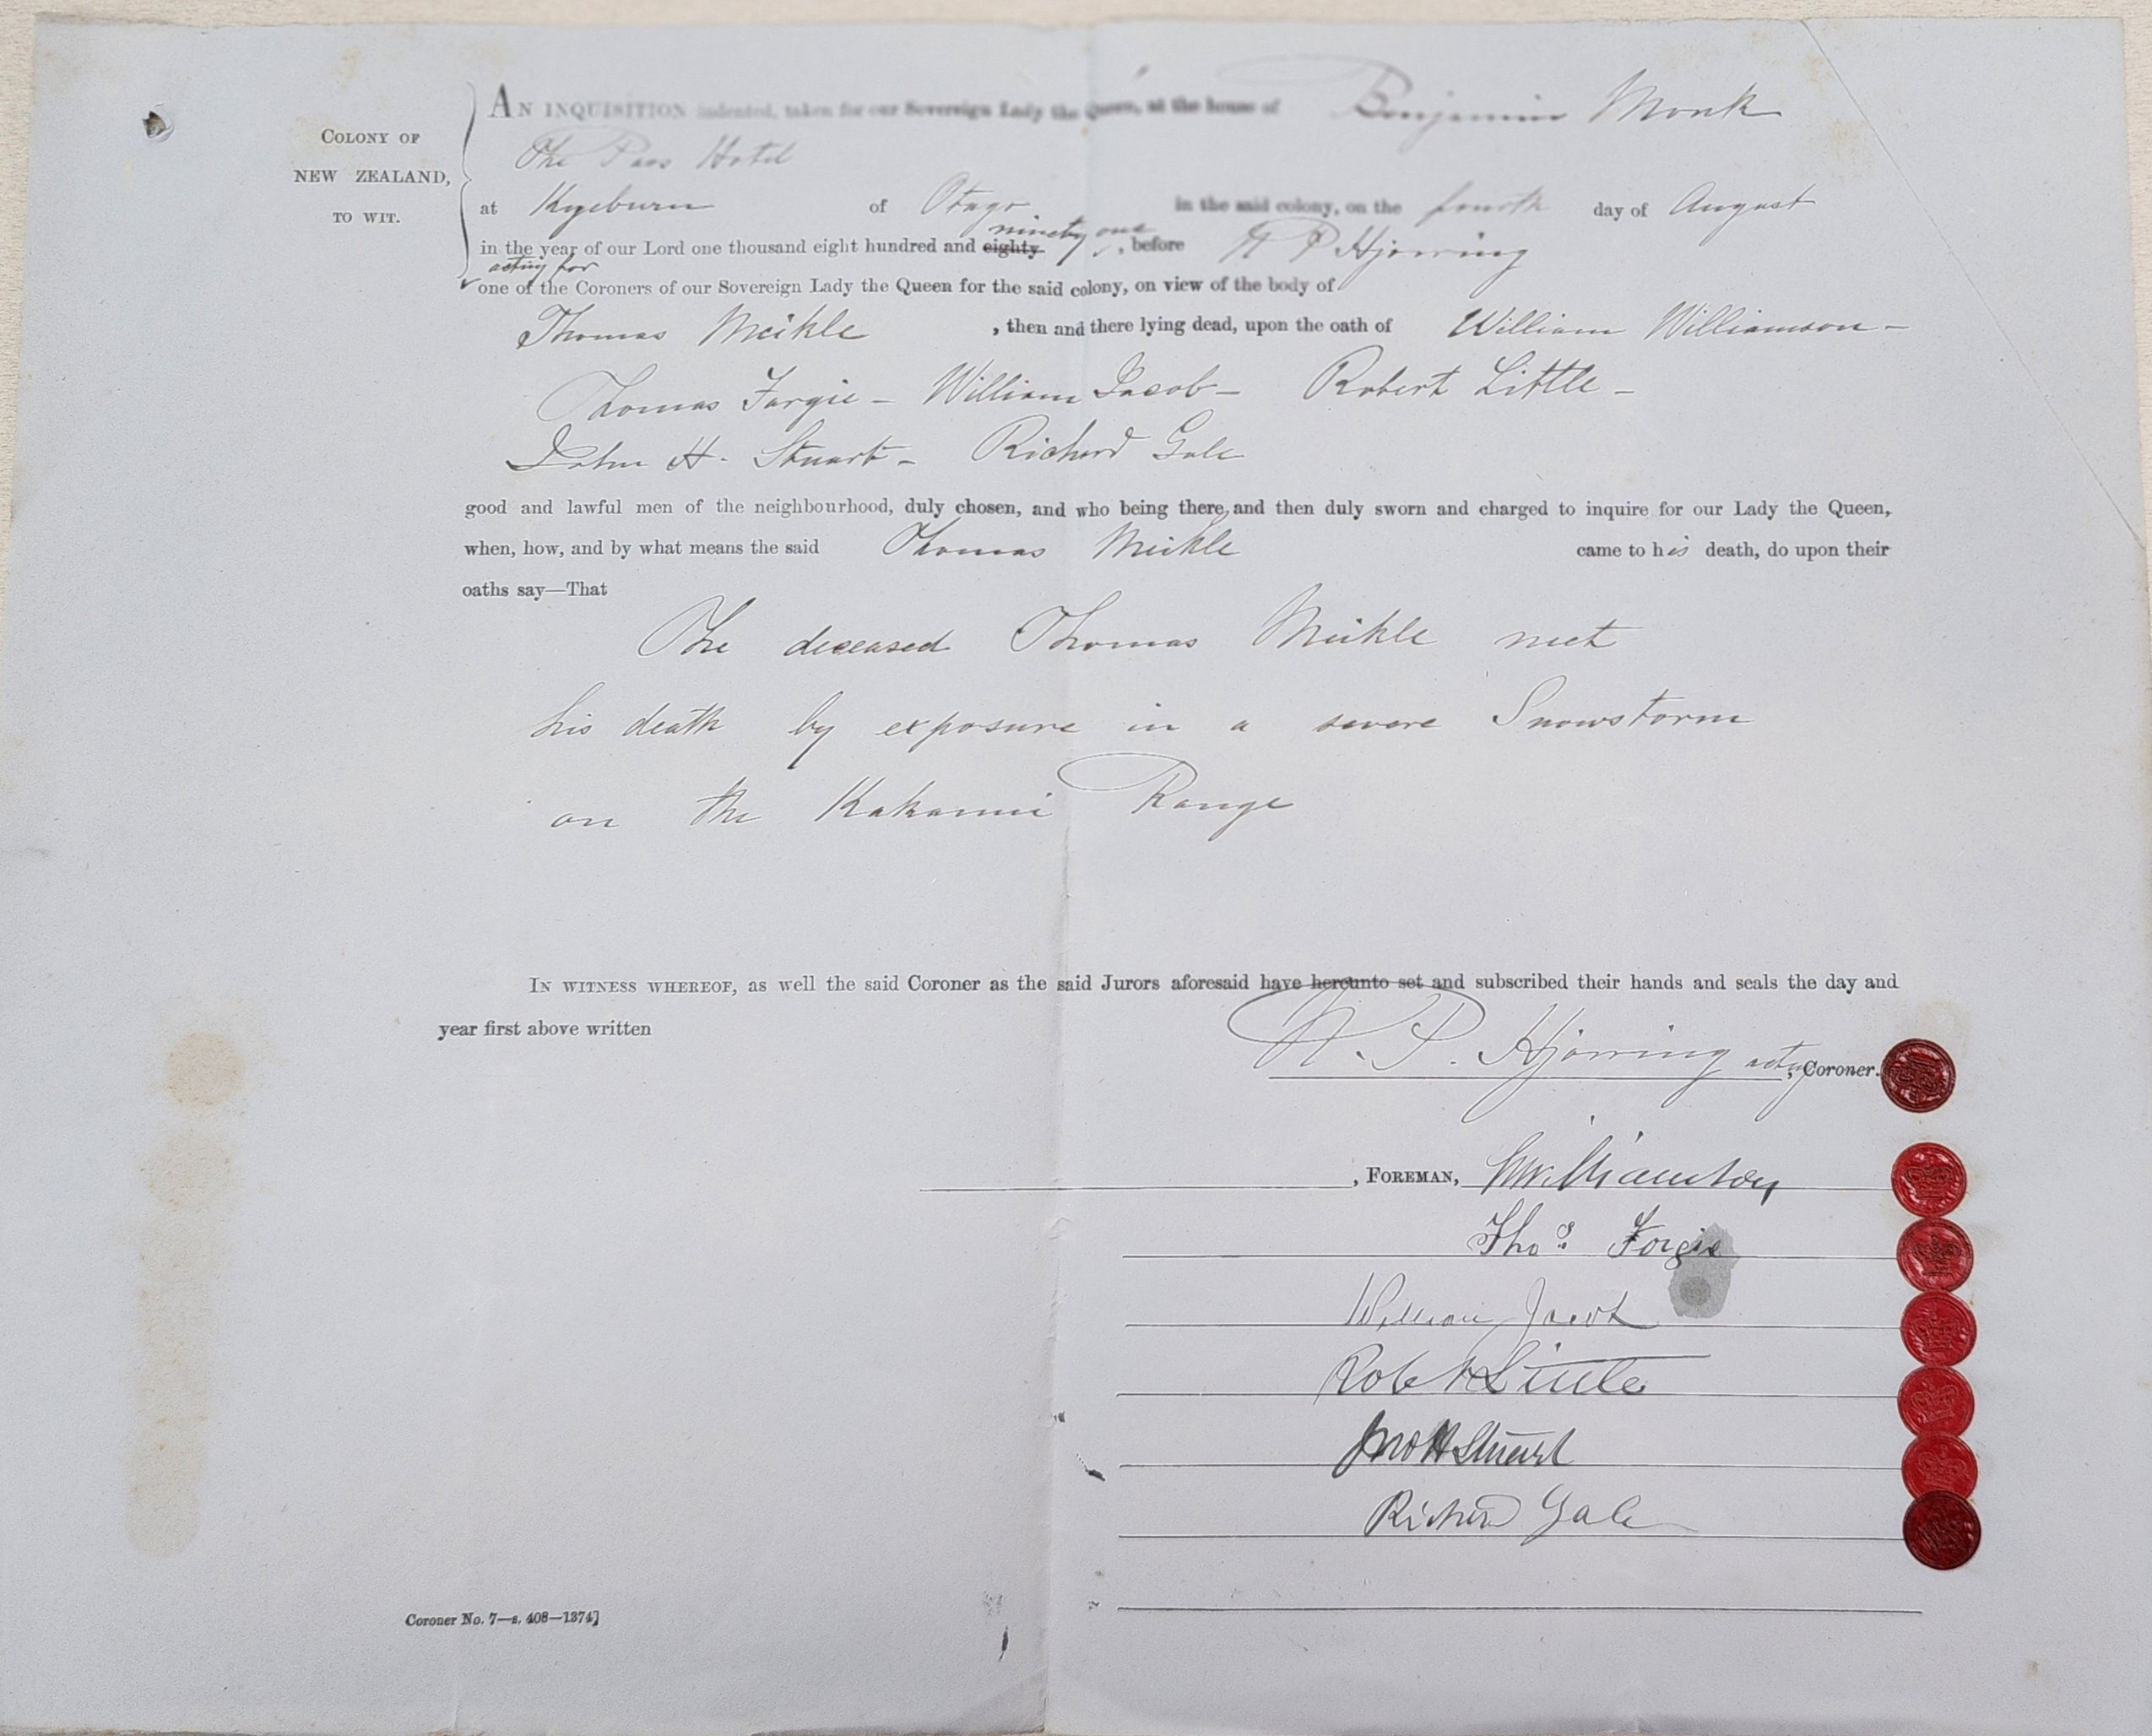 AN INQUISITION indented, taken for our Sovereign Lady the Queen, at the house of Benjamin Monk
COLONY OF
NEW ZEALAND,
TO WIT.
The Pass Hotel
at Kyeburn of Otago in the said colony, on the fourth day of August
ninety one
in the year of our Lord one thousand eight hundred and eighty , before N P Hjorring
acting for
one of the Coroners of our Sovereign Lady the Queen for the said colony, on view of the body of
Thomas Meikle , then and there lying dead, upon the oath of William Williamson –
Thomas Forgie – William Jacob – Robert Little –
John H. Stuart – Richard Gale
good and lawful men of the neighbourhood, duly chosen, and who being there and then duly sworn and charged to inquire for our Lady the Queen,
when, how, and by what means the said Thomas Meikle came to his death, do upon their
oaths say—That
The deceased Thomas Meikle met
his death by exposure in a severe Snowstorm
on the Kakanui Range
IN WITNESS WHEREOF, as well the said Coroner as the said Jurors aforesaid have hereunto set and subscribed their hands and seals the day and
year first above written
N. P. Hjorring actg, Coroner.
, FOREMAN, W Williamson
Thos. Forgie
William Jacob
Robt Little
Jno H Stuart
Richard Gale
Coroner No. 7—s. 408—1374]